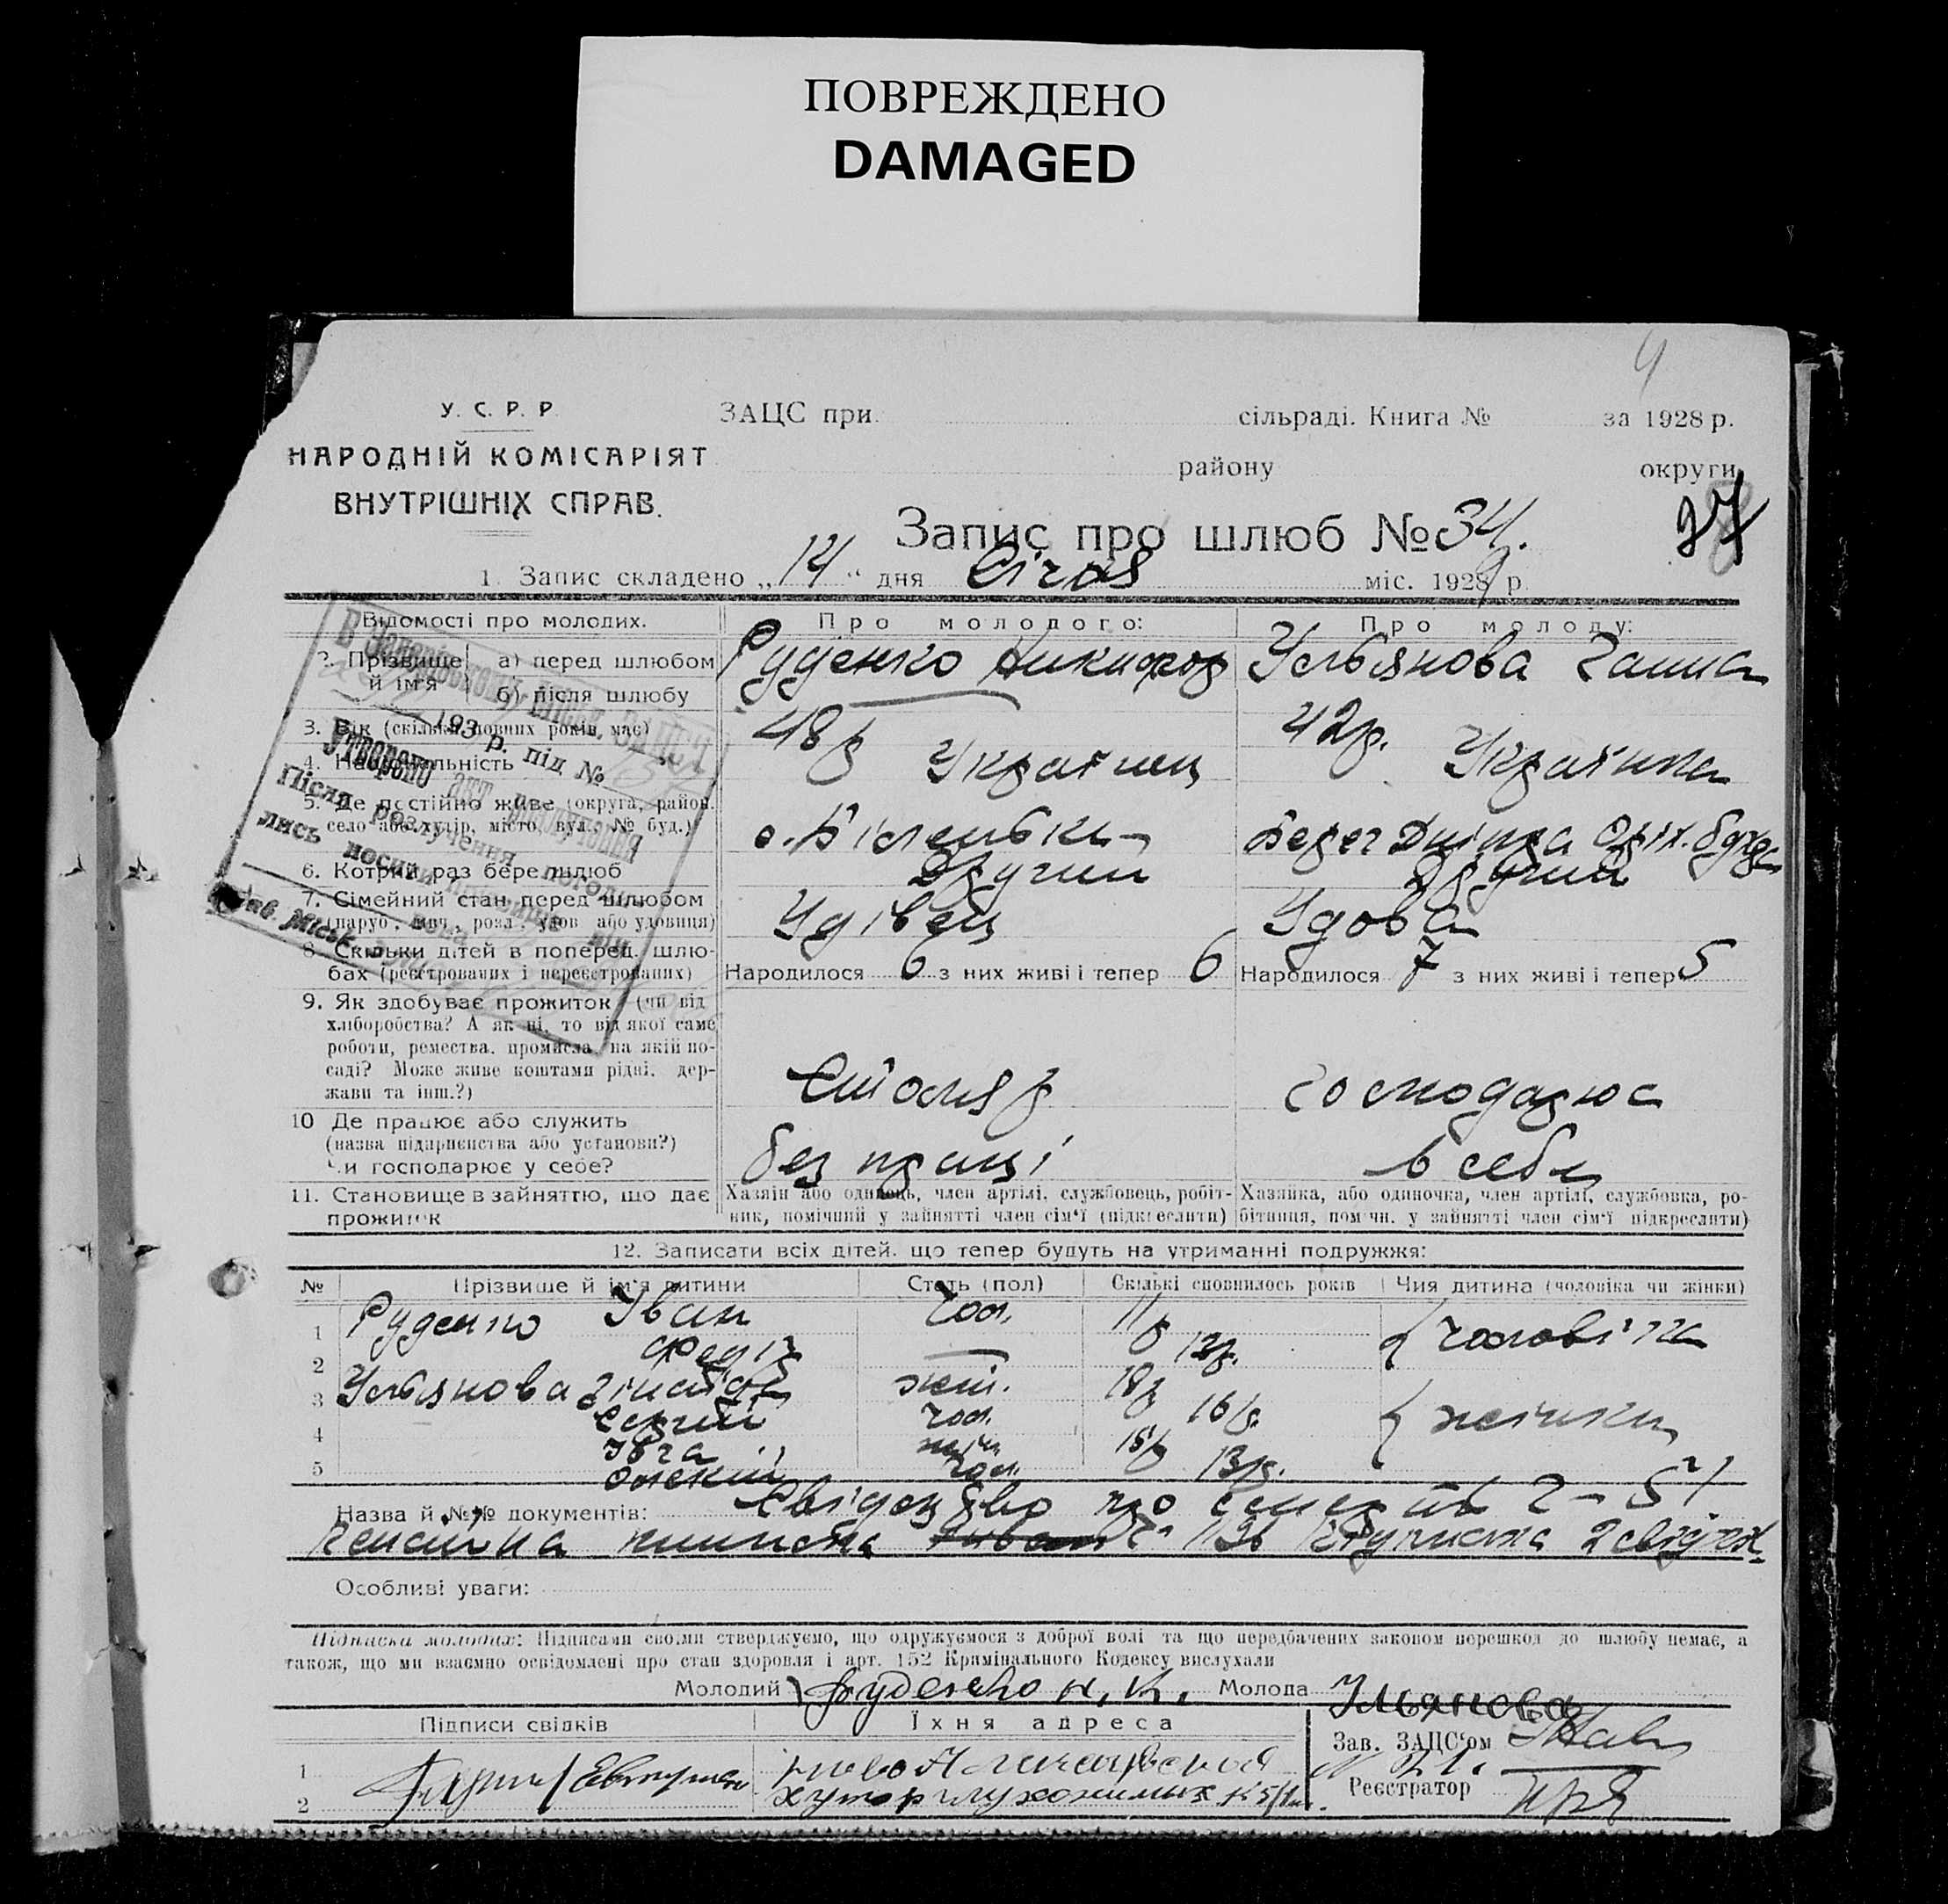 ПОВРЕЖДЕНО
DAMAGED
4
У. С. Р. Р.
НАРОДНІЙ КОМІСАРІЯТ
ВНУТРІШНІХ СПРАВ.
ЗАЦС при сільраді. Книга № за 1928 р.
району округи
Запис про шлюб № 34.
1. Запис складено „14“ дня Січня міс. 1929 р.
Відомості про молодих. Про молодого: Про молоду:
2. Прізвище й ім'я а) перед шлюбом Руденко Никифор Ульянова Ганна
б) після шлюбу
3. Вік (скільки повних років має) 48 р 42 р.
4. Національність Українец Українка
5. Де постійно живе (округа, район,
село або хутір, місто, вул., № буд.) с. Біленьки Берег Дніпра
6. Котрий раз бере шлюб Другий Другий
7. Сімейний стан перед шлюбом
(паруб., дівч., розл., удов. або удовиця) Удівец Удова
8. Скільки дітей в поперед. шлю-
бах (реєстрованих і нереєстрованих) Народилося 6 з них живі і тепер 6 Народилося 7 з них живі і тепер 5
9. Як здобуває прожиток (чи від
хліборобства? А як ні, то від якої саме
роботи, ремества, промисла, на якій по-
саді? Може живе коштами рідні, дер-
жави та інш.?) Столяр господарює
10 Де працює або служить
(назва підприємства або установи?)
Чи господарює у себе? без праці в себе
11. Становище в зайняттю, що дає
прожиток
Хазяін або одинець, член артілі, службовець, робіт-
ник, помічний у зайнятті член сім'ї (підкреслити)
Хазяйка, або одиночка, член артілі, службовка, ро-
бітниця, помічн. у зайнятті член сім'ї підкреслити)
В Запорізькому міськ. ЗАГСІ
193 р. під №
Утворено акт розлучення
Після розлучення погоди-
лись носити прізвища він
вона
Зав. міськ.
12. Записати всіх дітей, що тепер будуть на утриманні подружжя:
№ Прізвище й ім'я дитини Стать (пол) Скількі сповнилось років Чия дитина (чоловіка чи жінки)
1 Руденко Іван чол. 11 р чоловіка
2 Федір 12 р.
3 Ульянова жін. 18 р жінки
4 Сергій чол. 16 р.
5 Ївга жін. 15 р
Олексій чол. 13 р.
Назва й №№ документів: Свідоцтво про смерть
Особливі уваги:
Підписка молодих: Підписами своіми стверджуємо, що одружуємося з доброї волі та що передбачених законом перешкод до шлюбу немає, а
також, що ми взаємно освідомлені про стан здоровля і арт. 152 Крамінального Кодексу вислухали
Молодий Руденко Н. К. Молода Ульянова
Підписи свідків Їхня адреса Зав. ЗАЦС'ом
1
2 хутор
Реєстратор